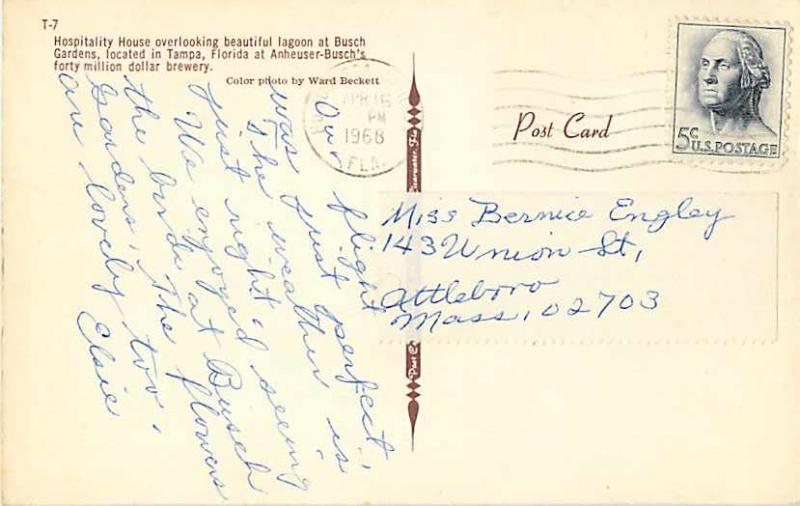 T-7
Hospitality House overlooking beautiful lagoon at Busch
Gardens, located in Tampa, Florida at Anheuser-Busch's
forty million dollar brewery.
Color photo by Ward Beckett
APR 16
PM
1968
FLA.
Post Card
5c
U.S. POSTAGE
Our flight
was just perfect,
The weather is
just right.
We enjoyed seeing
the birds at Busch
Gardens, The flowers
are lovely too.
Elsie
Miss Bernice Engley
143 Union St,
Attleboro
Mass, 02703
Clearwater, Fla.
Post C